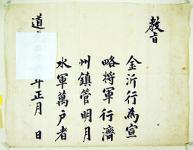 教旨
金沂行為宣
略將軍行濟
州鎮管明月
水軍萬戶者
道
年正月 日